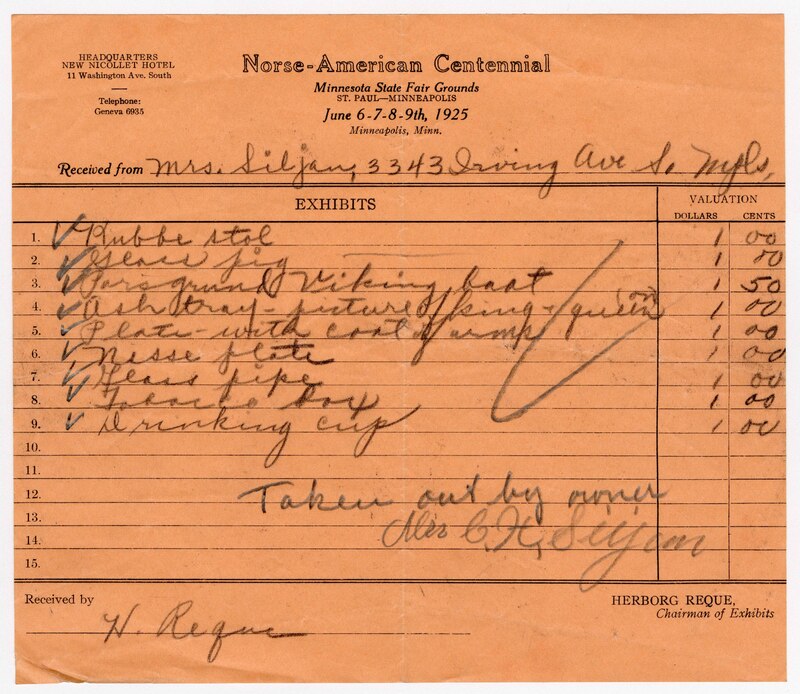 HEADQUARTERS
NEW NICOLLET HOTEL
11 Washington Ave. South
Telephone:
Geneva 6935
Norse-American Centennial
Minnesota State Fair Grounds
ST. PAUL—MINNEAPOLIS
June 6-7-8-9th, 1925
Minneapolis, Minn.
Received from Mrs. Siljan, 3343 Irving Ave So. Mpls.
EXHIBITS VALUATION
DOLLARS CENTS
1. ✓ Kubbe stol 1 00
2. ✓ Glass pig 1 00
3. ✓ Porsgrund Viking boat 1 50
4. ✓ Ash tray - picture of king & queen (on) 1 00
5. ✓ Plate - with coat of arms 1 00
6. ✓ Nisse plate 1 00
7. ✓ Glass pipe 1 00
8. ✓ Tobacco box 1 00
9. ✓ Drinking cup 1 00
10.
11.
12. Taken out by owner
13.
14. Mrs C. H. Siljan
15.
Received by H. Reque
HERBORG REQUE,
Chairman of Exhibits